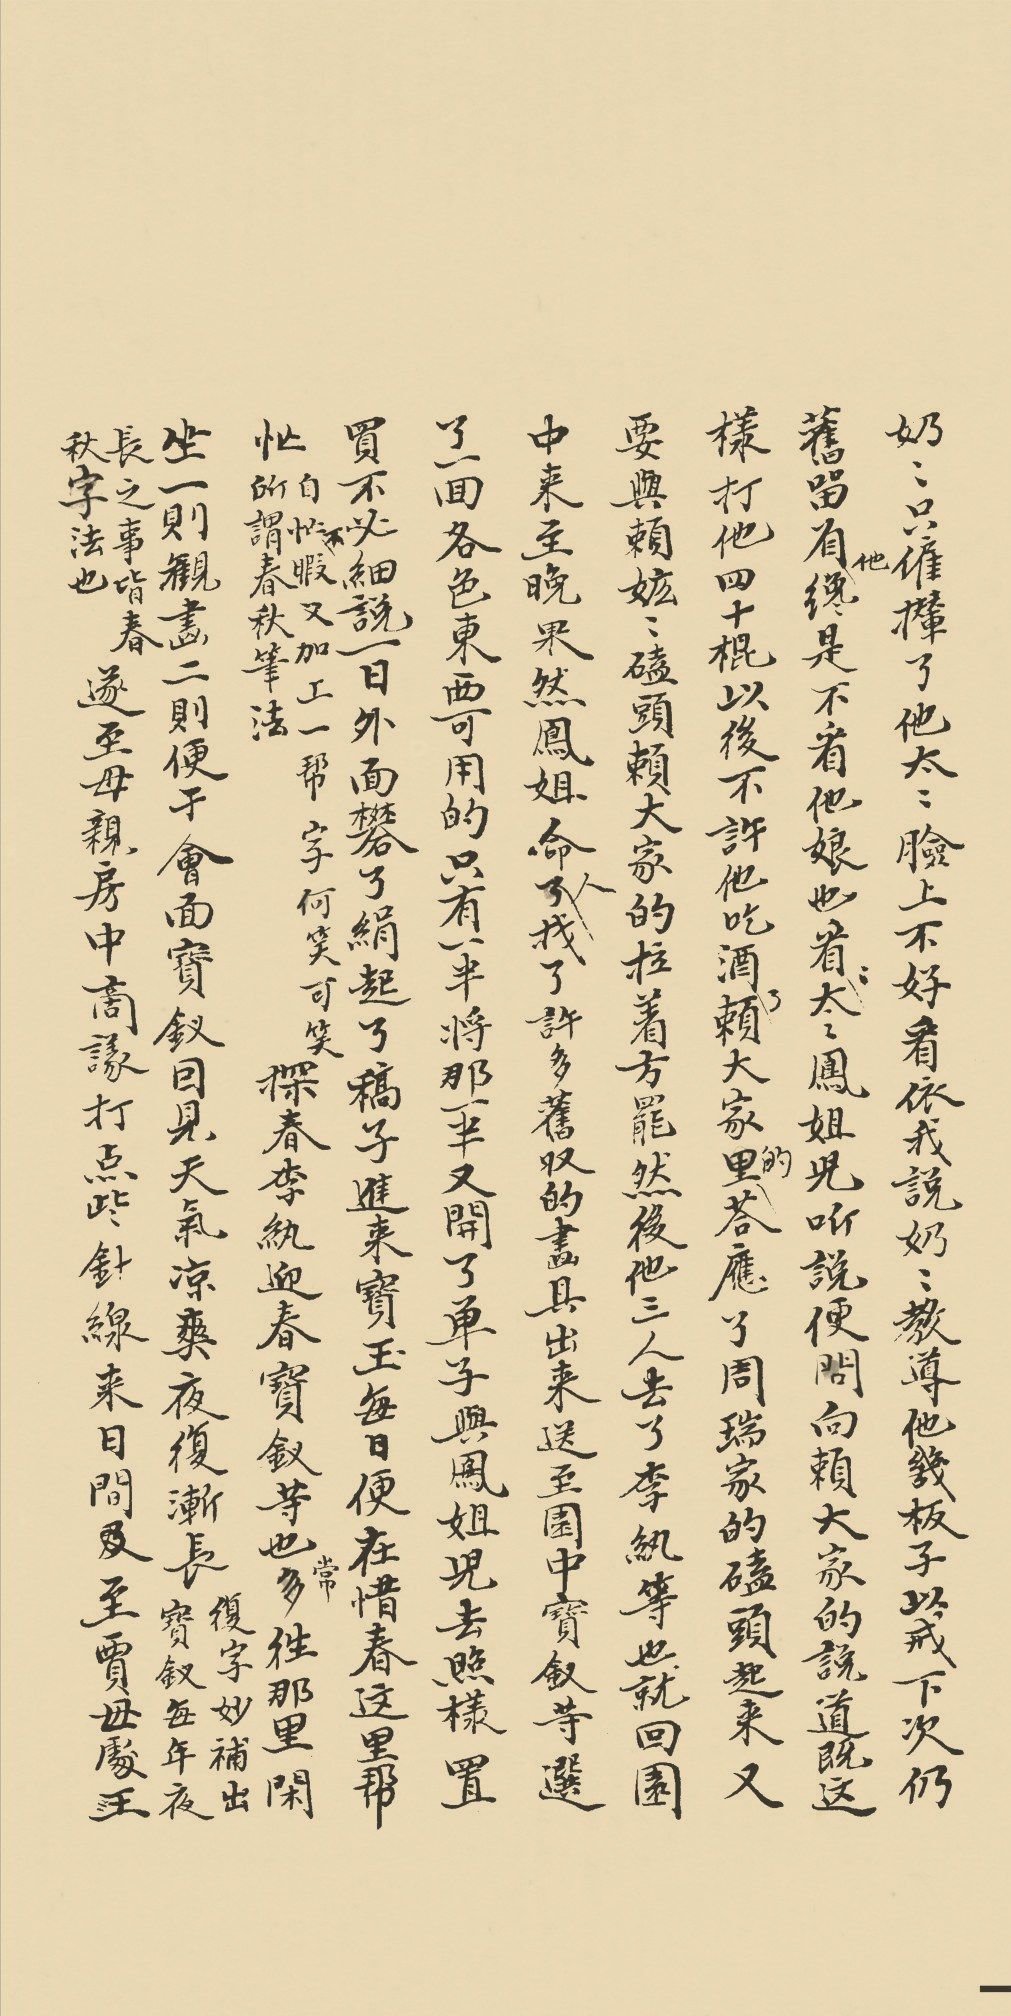 奶〻只僱攆了他太〻臉上不好看依我説奶〻教導他幾板子以戒下次仍
舊留有他纔是不看他娘也看太〻鳳姐児听説便問向賴大家的説道既这
樣打他四十棍以後不許他吃酒了賴大家里的荅應了周瑞家的磕頭起来又
要與賴嬷〻磕頭賴大家的拉着方罷然後他三人去了李紈等也就回園
中来至晚果然鳳姐命人了找了許多舊収的畫具出来送至園中寶釵等選
了一囬各色東西可用的只有一半將那一半又開了单子與鳳姐児去照樣置
買不必細説一日外面礬了絹起了稿子進来寶玉每日便在惜春这里帮
忙
自忙不暇又加上一帮字何笑可笑
所謂春秋筆法
探春李紈迎春寶釵等也常多徃那里閑
坐一則觀畫二則便于會面寶釵回見天氣凉爽夜復漸長
復字妙補出
寶釵每年夜
長之事皆春
秋字法也
遂至母親房中商議打点些針線来日間及至賈母處王